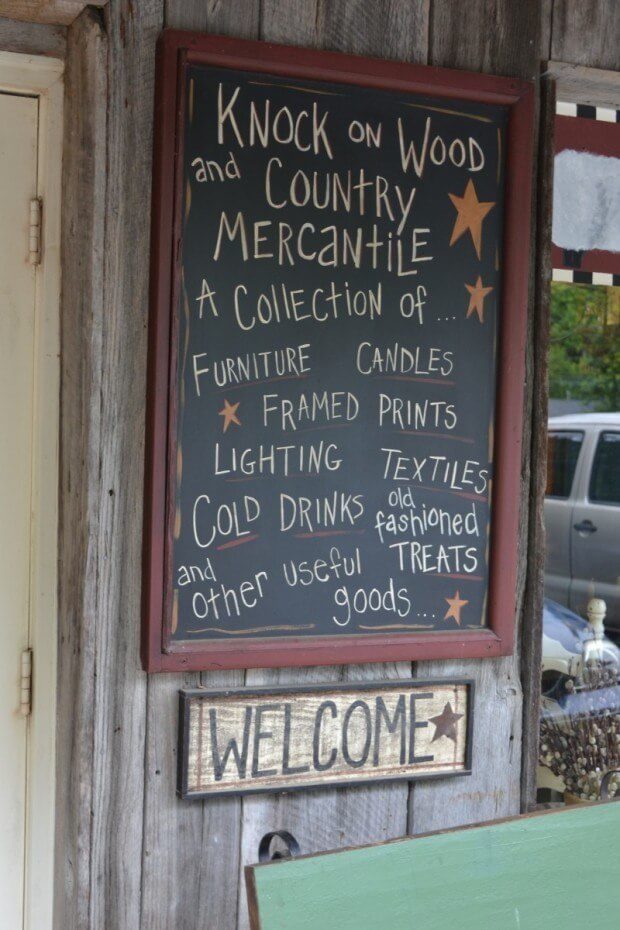 KNOCK ON WOOD
and COUNTRY
MERCANTILE
A COLLECTION OF...
FURNITURE CANDLES
FRAMED PRINTS
LIGHTING TEXTILES
COLD DRINKS old fashioned TREATS
and other useful goods...
WELCOME